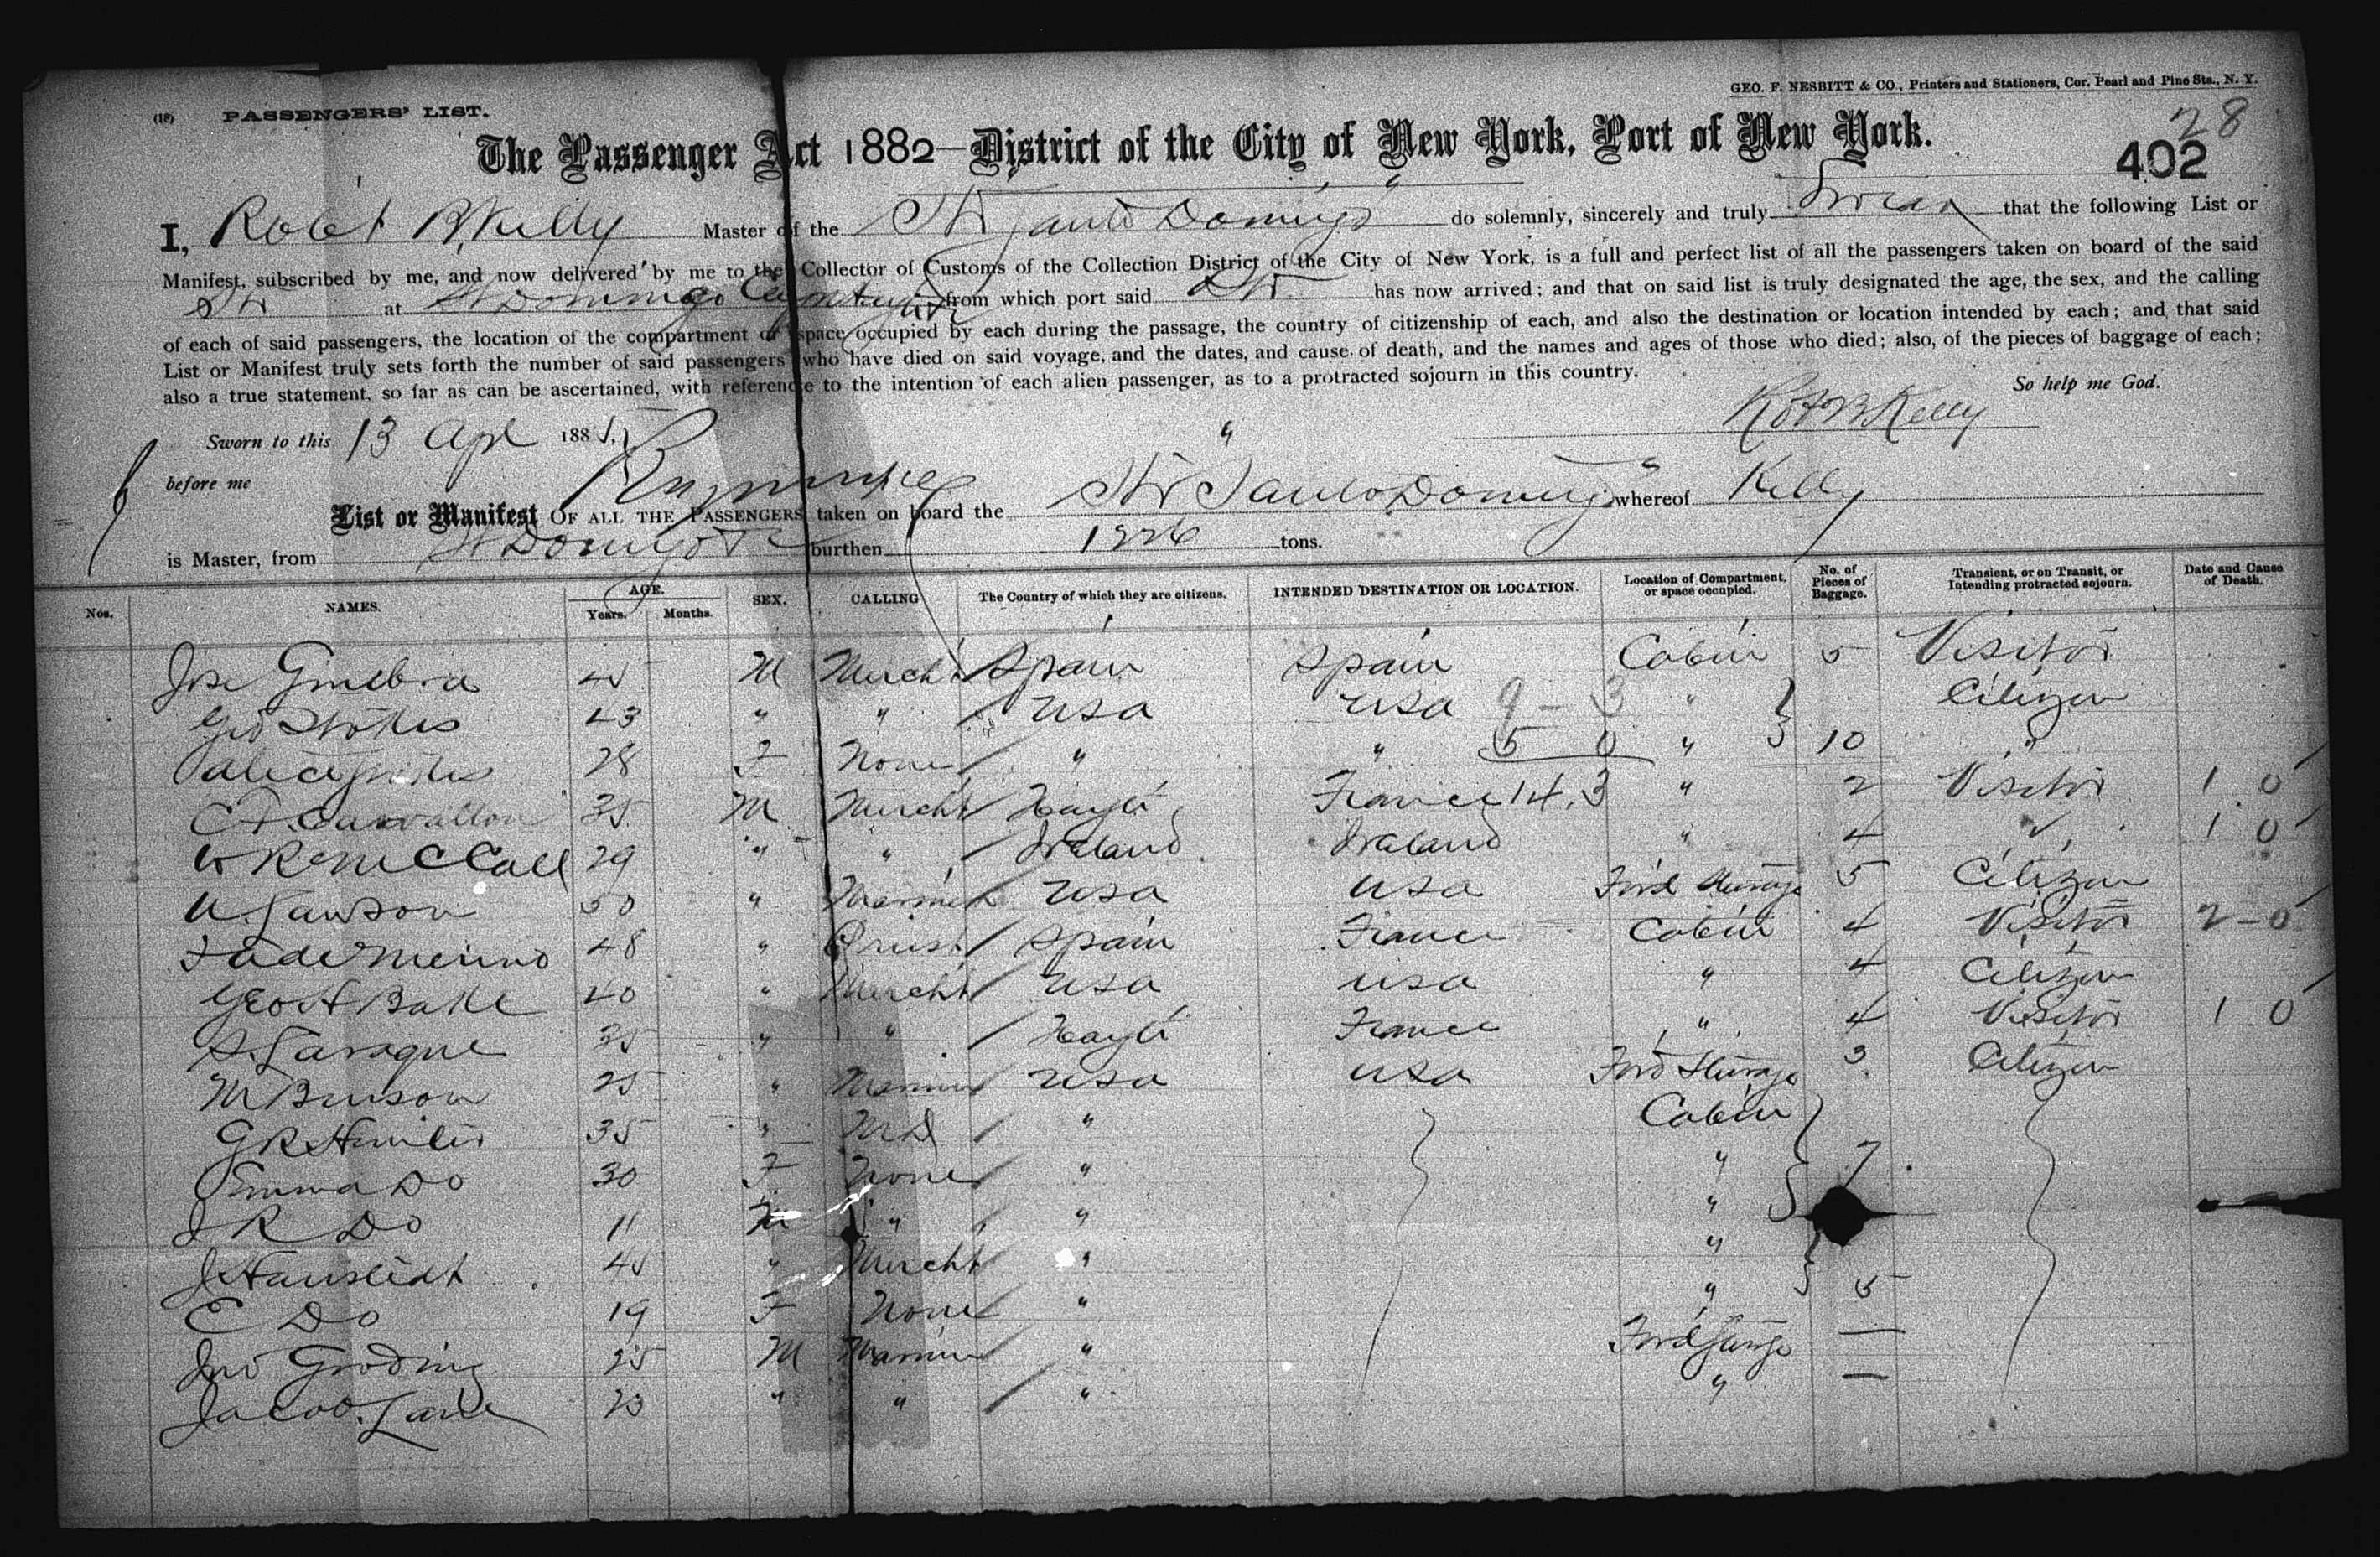 GEO. F. NESBITT & CO., Printers and Stationers, Cor. Pearl and Pine Sts., N. Y.
(18) PASSENGERS' LIST.
28
The Passenger Act 1882—District of the City of New York, Port of New York.
402
I, Robt B Kelly Master of the Str Santo Domingo do solemnly, sincerely and truly Swear that the following List or
Manifest, subscribed by me, and now delivered by me to the Collector of Customs of the Collection District of the City of New York, is a full and perfect list of all the passengers taken on board of the said
Str at St Domingo City from which port said Str has now arrived; and that on said list is truly designated the age, the sex, and the calling
of each of said passengers, the location of the compartment or space occupied by each during the passage, the country of citizenship of each, and also the destination or location intended by each; and that said
List or Manifest truly sets forth the number of said passengers who have died on said voyage, and the dates, and cause of death, and the names and ages of those who died; also, of the pieces of baggage of each;
also a true statement, so far as can be ascertained, with reference to the intention of each alien passenger, as to a protracted sojourn in this country.
So help me God.
Sworn to this 13 Apl 1885, Robt B Kelly
before me
List or Manifest OF ALL THE PASSENGERS taken on board the Str Santo Domingo whereof Kelly
is Master, from St Domingo burthen tons.
Nos. NAMES. AGE. Years. Months. SEX. CALLING The Country of which they are citizens. INTENDED DESTINATION OR LOCATION. Location of Compartment, or space occupied. No. of Pieces of Baggage. Transient, or on Transit, or Intending protracted sojourn. Date and Cause of Death.
Jose Ginebra 45 M Mercht Spain Spain Cabin 5 Visitor
Geo Stokes 43 " " USA USA 9 - 3 " Citizen
Alice Stokes 28 F None " " 5 0 " 10 "
35 M Mercht Hayti France 14.3 " 2 Visitor 1 0
McCall 29 " " Ireland Ireland " 4 " 1 0
Lawson 50 " Mariner USA USA Ford Steerage 5 Citizen
Merino 48 " Priest Spain France Cabin 4 Visitor 2-0
Geo H 40 " Mercht USA USA " 4 Citizen
35 " " Hayti France " 4 Visitor 1 0
M Benson 25 " Mariner USA USA Ford Steerage 3 Citizen
G R Hunter 35 " MD " Cabin
Emma Do 30 F None " " 7
J R Do 11 M " " "
J Hanstedt 45 " Mercht " "
E Do 19 F None " " 5
Jno Groding 25 M Mariner " Ford Steerage —
Jacob Lane 23 " " " " —